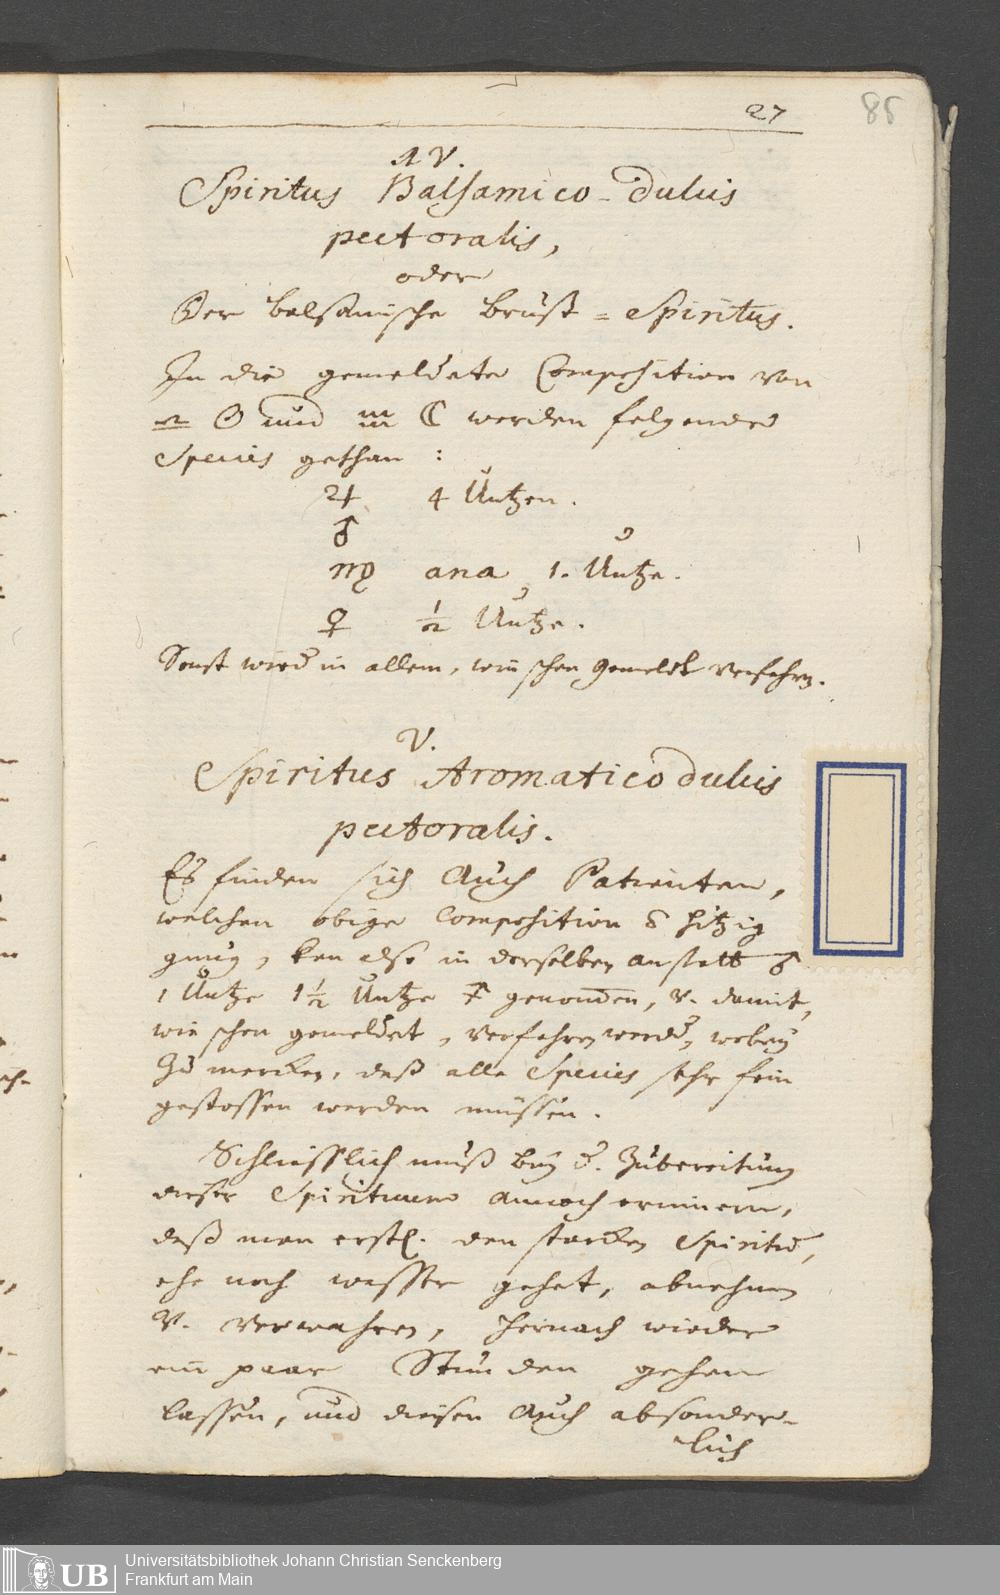 27
85
IV.
Spiritus Balsamico-dulcis
pectoralis,
oder
Der balsamische Brust = Spiritus.
In die gemeldete Composition von
♎ ☉ und ♏ ☾ werden folgende
Species gethan :
♃ 4 Untzen.
♂
♍ ana 1. Untze.
♀ ½ Untze.
Sonst wird in allem, wie schon gemelt verfahren.
V.
Spiritus Aromatico dulcis
pectoralis.
Es finden sich auch Patienten,
welchen obige Composition hitzig
gnug, kan also in derselben anstatt ♂
1 Untze 1½ Untze genommen, u. damit,
wie schon gemeldet, verfahren werden, wobey
zu mercken, daß alle Species sehr fein
gestossen werden müssen.
Schliesslich muß bey d. Zubereitung
dieser Spirituum annoch erinnern,
daß man erstl. den starcken Spiritum,
ehe noch wasser gehet, abnehmen
u. verwahren, hernach wieder
ein paar Stunden gehen
lassen, und diesen auch absonder-
lich
UB
Universitätsbibliothek Johann Christian Senckenberg
Frankfurt am Main